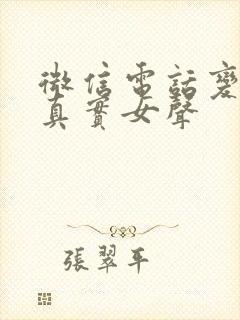 微信電話變
真實女聲
張翠平